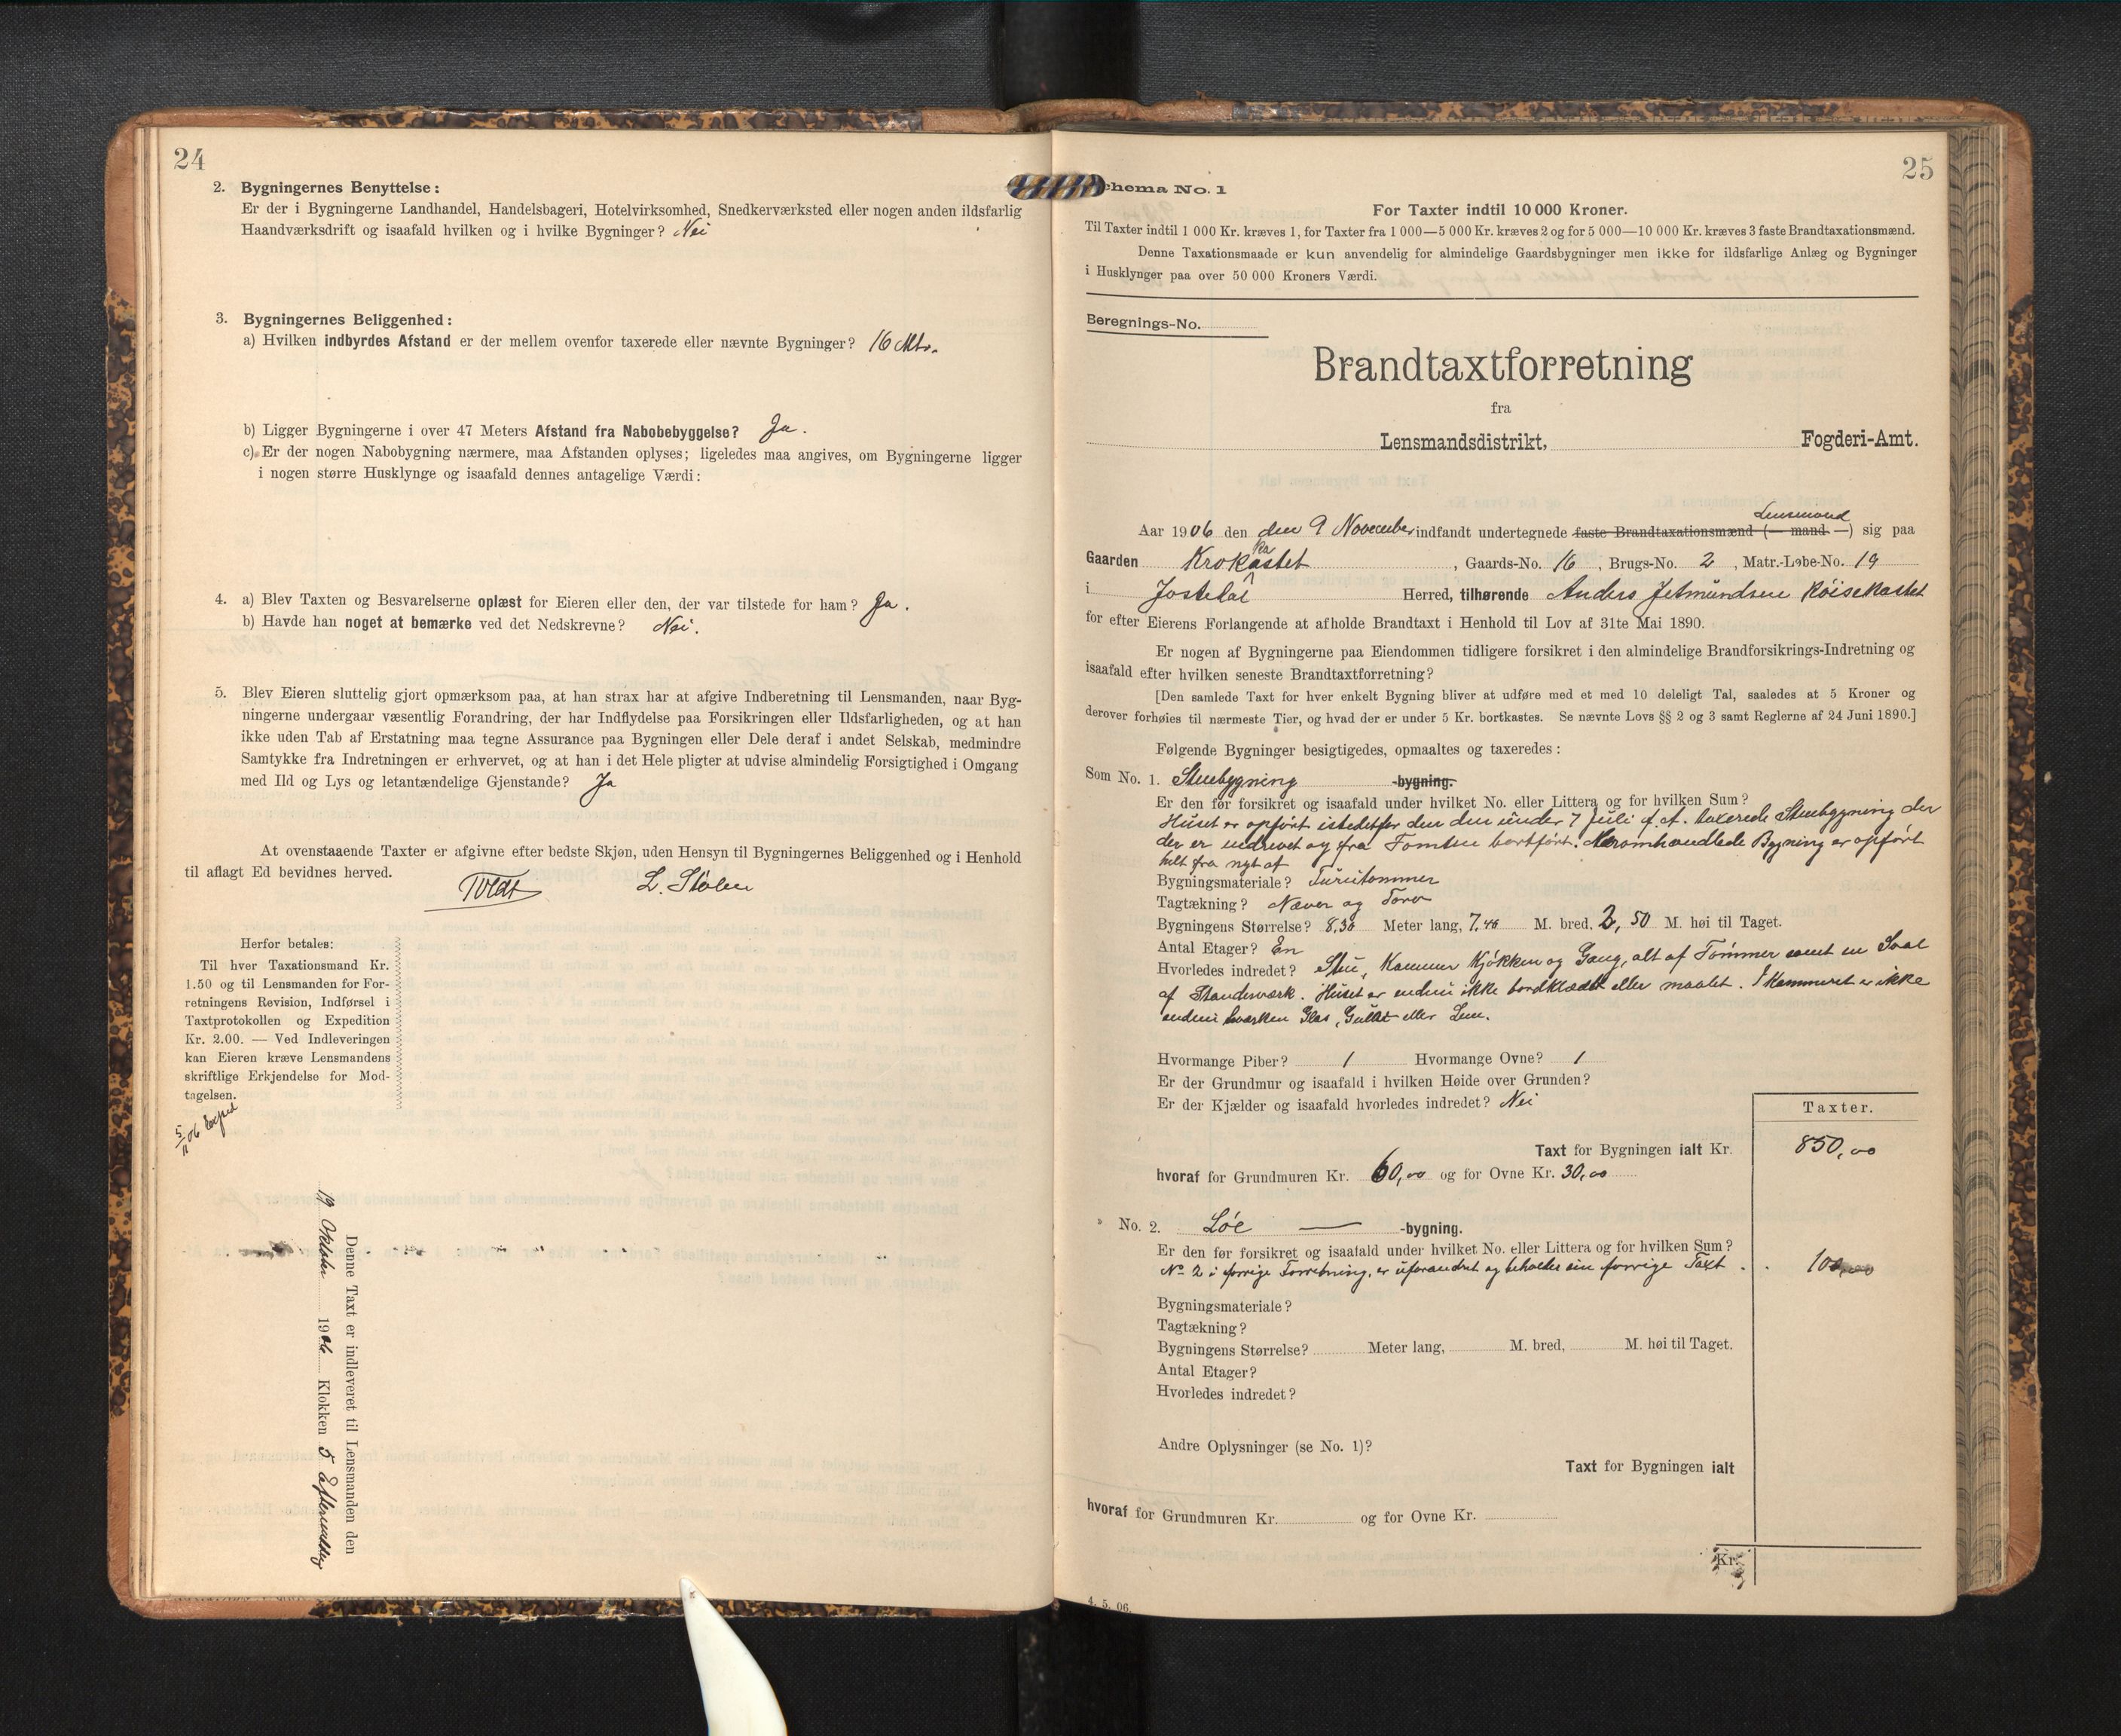 24
2. Bygningernes Benyttelse:
Er der i Bygningerne Landhandel, Handelsbageri, Hotelvirksomhed, Snedkerværksted eller nogen anden ildsfarlig
Haandværksdrift og isaafald hvilken og i hvilke Bygninger? Nei
3. Bygningernes Beliggenhed:
a) Hvilken indbyrdes Afstand er der mellem ovenfor taxerede eller nævnte Bygninger? 16 Mtr.
b) Ligger Bygningerne i over 47 Meters Afstand fra Nabobebyggelse? Ja.
c) Er der nogen Nabobygning nærmere, maa Afstanden oplyses; ligeledes maa angives, om Bygningerne ligger
i nogen større Husklynge og isaafald dennes antagelige Værdi:
4. a) Blev Taxten og Besvarelserne oplæst for Eieren eller den, der var tilstede for ham? Ja.
b) Havde han noget at bemærke ved det Nedskrevne? Nei.
5. Blev Eieren sluttelig gjort opmærksom paa, at han strax har at afgive Indberetning til Lensmanden, naar Byg-
ningerne undergaar væsentlig Forandring, der har Indflydelse paa Forsikringen eller Ildsfarligheden, og at han
ikke uden Tab af Erstatning maa tegne Assurance paa Bygningen eller Dele deraf i andet Selskab, medmindre
Samtykke fra Indretningen er erhvervet, og at han i det Hele pligter at udvise almindelig Forsigtighed i Omgang
med Ild og Lys og letantændelige Gjenstande? Ja
At ovenstaaende Taxter er afgivne efter bedste Skjøn, uden Hensyn til Bygningernes Beliggenhed og i Henhold
til aflagt Ed bevidnes herved.
L. Stølen
Herfor betales:
Til hver Taxationsmand Kr.
1.50 og til Lensmanden for For-
retningens Revision, Indførsel i
Taxtprotokollen og Expedition
Kr. 2.00. — Ved Indleveringen
kan Eieren kræve Lensmandens
skriftlige Erkjendelse for Mod-
tagelsen.
5/11 06 Exped
Denne Taxt er indleveret til Lensmanden den
19 Oktober 1906 Klokken 5 Eftermiddag
25
Schema No. 1
For Taxter indtil 10 000 Kroner.
Til Taxter indtil 1 000 Kr. kræves 1, for Taxter fra 1 000—5 000 Kr. kræves 2 og for 5 000—10 000 Kr. kræves 3 faste Brandtaxationsmænd.
Denne Taxationsmaade er kun anvendelig for almindelige Gaardsbygninger men ikke for ildsfarlige Anlæg og Bygninger
i Husklynger paa over 50 000 Kroners Værdi.
Beregnings-No.
Brandtaxtforretning
fra
Lensmandsdistrikt, Fogderi-Amt.
Lensmand
Aar 1906 den den 9 November indfandt undertegnede faste Brandtaxationsmænd (— mand —) sig paa
Gaarden Krokastet, Gaards-No. 16, Brugs-No. 2, Matr.-Løbe-No. 19
i Jostedal Herred, tilhørende Anders Jetmundsen Røisekastet
for efter Eierens Forlangende at afholde Brandtaxt i Henhold til Lov af 31te Mai 1890.
Er nogen af Bygningerne paa Eiendommen tidligere forsikret i den almindelige Brandforsikrings-Indretning og
isaafald efter hvilken seneste Brandtaxtforretning?
[Den samlede Taxt for hver enkelt Bygning bliver at udføre med et med 10 deleligt Tal, saaledes at 5 Kroner og
derover forhøies til nærmeste Tier, og hvad der er under 5 Kr. bortkastes. Se nævnte Lovs §§ 2 og 3 samt Reglerne af 24 Juni 1890.]
Følgende Bygninger besigtigedes, opmaaltes og taxeredes:
Som No. 1. Stuebygning -bygning.
Er den før forsikret og isaafald under hvilket No. eller Littera og for hvilken Sum?
Huset er opført istedetfor den den under 7 Juli f. A. taxerede Stuebygning der
der er nedrevet og fra Tomten bortført. Næromhandlede Bygning er opført
helt fra nyt af
Bygningsmateriale? Furutømmer
Tagtækning? Næver og Torv
Bygningens Størrelse? 8,30 Meter lang, 7,40 M. bred, 2,50 M. høi til Taget.
Antal Etager? En
Hvorledes indredet? Stue, Kammer Kjøkken og Gang, alt af Tømmer samt en Sval
af Standerværk. Huset er endnu ikke bordklædt eller maalet. I Kammeret er ikke
endnu hverken Glas, Gulv eller Lem.
Hvormange Piber? 1 Hvormange Ovne? 1
Er der Grundmur og isaafald i hvilken Høide over Grunden?
Er der Kjælder og isaafald hvorledes indredet? Nei
Taxter.
Taxt for Bygningen ialt Kr. 850,00
hvoraf for Grundmuren Kr. 60,00 og for Ovne Kr. 30,00
No. 2. Løe -bygning.
Er den før forsikret og isaafald under hvilket No. eller Littera og for hvilken Sum?
No 2 i forrige Forretning, er uforandret og beholder sin forrige Taxt. 100,00
Bygningsmateriale?
Tagtækning?
Bygningens Størrelse? Meter lang, M. bred, M. høi til Taget.
Antal Etager?
Hvorledes indredet?
Andre Oplysninger (se No. 1)?
Taxt for Bygningen ialt
hvoraf for Grundmuren Kr. og for Ovne Kr.
Kr.
4. 5. 06.